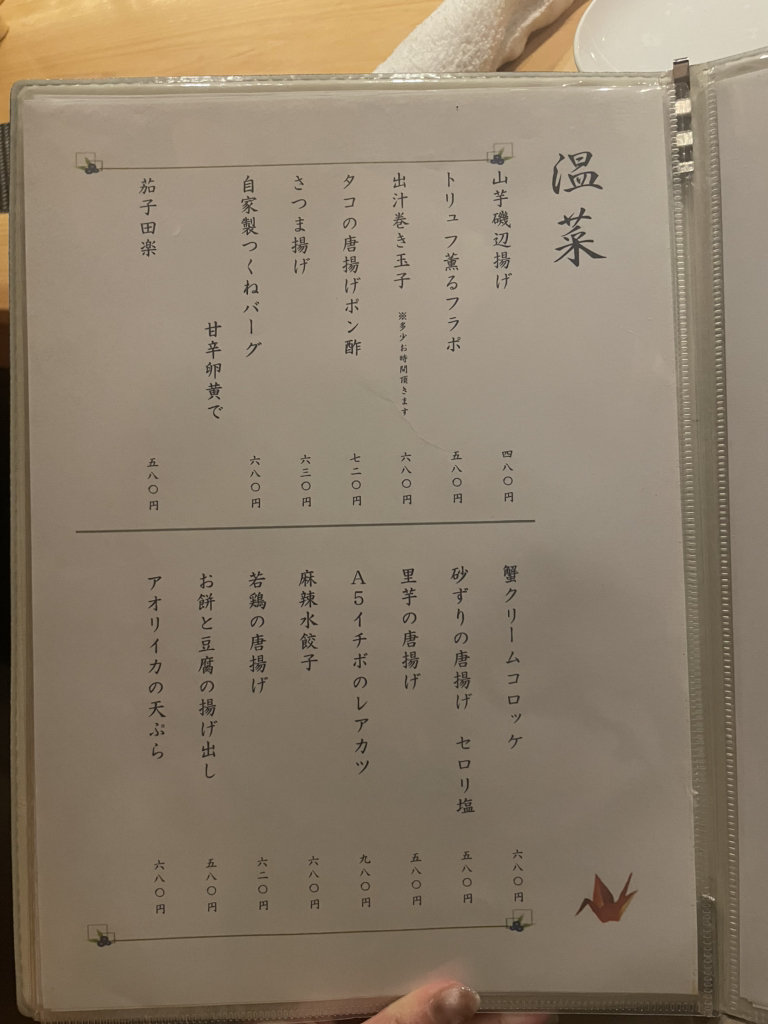 温菜
山芋磯辺揚げ 四八〇円
トリュフ薫るフラポ 五八〇円
出汁巻き玉子 ※多少お時間頂きます 六八〇円
タコの唐揚げポン酢 七二〇円
さつま揚げ 六三〇円
自家製つくねバーグ 六八〇円
甘辛卵黄で
茄子田楽 五八〇円
蟹クリームコロッケ 六八〇円
砂ずりの唐揚げ セロリ塩 五八〇円
里芋の唐揚げ 五八〇円
A5イチボのレアカツ 九八〇円
麻辣水餃子 六八〇円
若鶏の唐揚げ 六二〇円
お餅と豆腐の揚げ出し 五八〇円
アオリイカの天ぷら 六八〇円